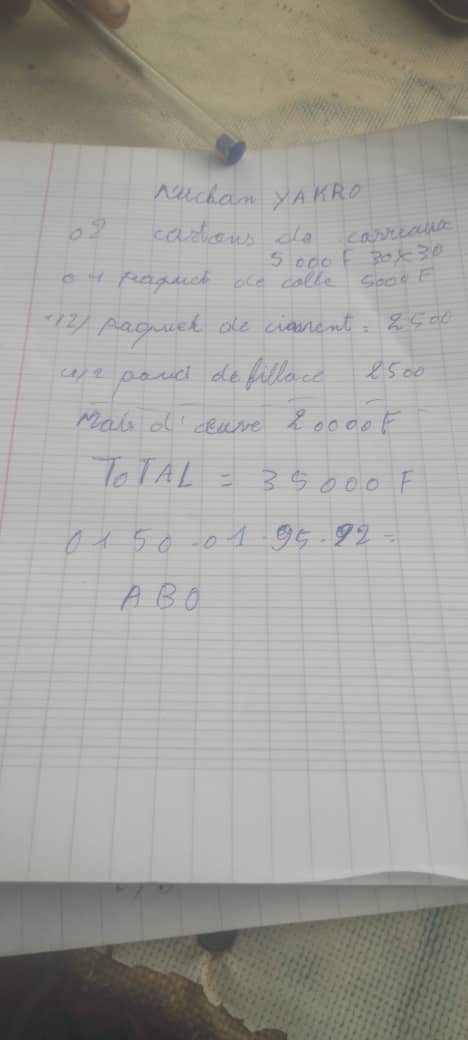 Nuchan YAKRO
02 cartons de carreaux
5000F 30x30
01 paquet de colle 5000F
1/2 paquet de ciment = 2500
1/2 de fillace 2500
Main d'œuvre 20000F
TOTAL = 35000F
01 50-01.95.92=
ABO